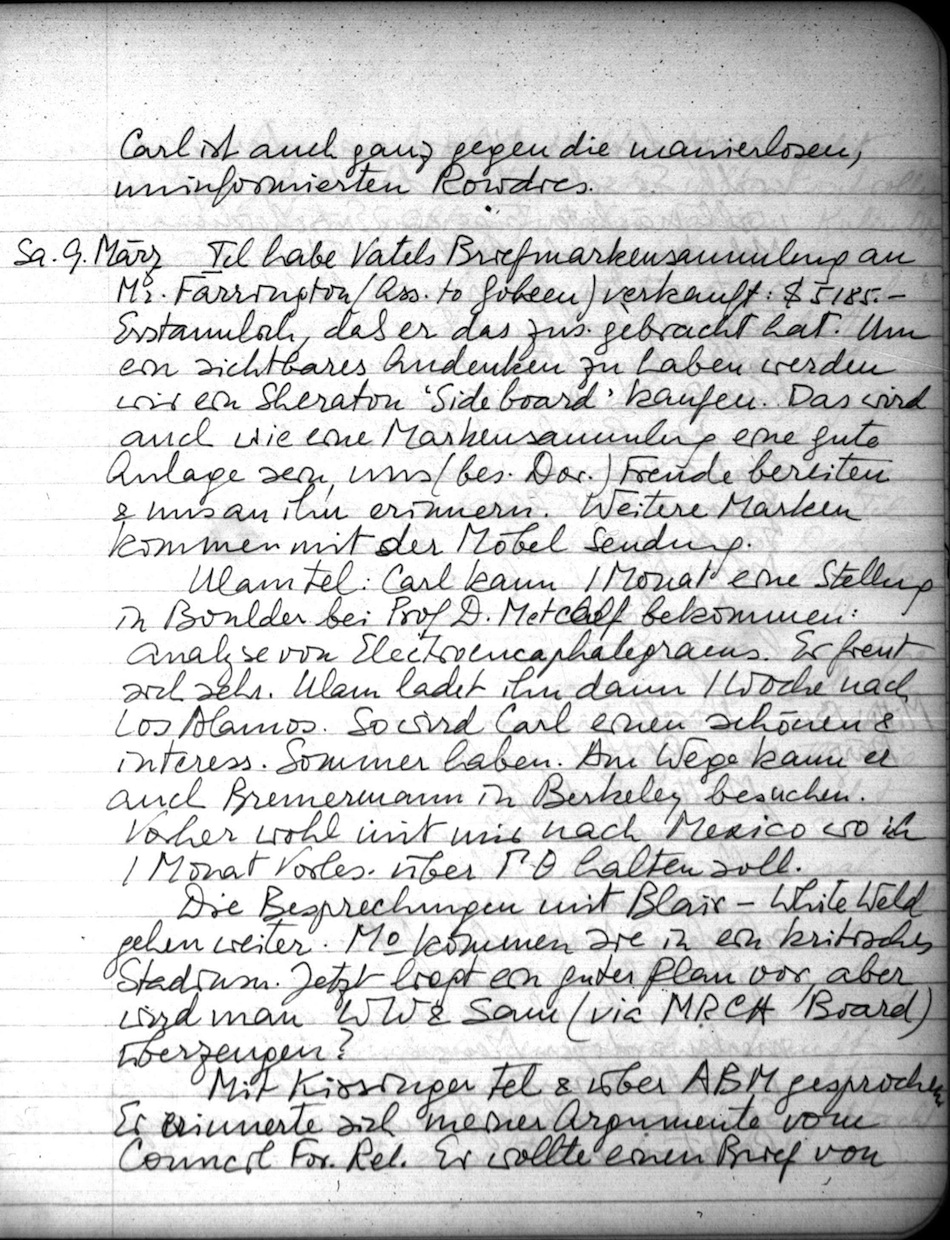 Carl ist auch ganz gegen die manierlosen,
uninformierten Rowdies.
Sa. 9. März Ich habe Vatels Briefmarkensammlung an
Mr. Farrington (Ass. to Gobeen) verkauft: $ 5185.-
Erstaunlich, daß er das zus. gebracht hat. Um
ein sichtbares Andenken zu haben werden
wir ein Sheraton 'Sideboard' kaufen. Das wird
auch wie eine Markensammlung eine gute
Anlage sein, uns (bes. Dor.) Freude bereiten
& uns an ihn erinnern. Weitere Marken
kommen mit der Möbel Sendung.
Ulam tel: Carl kann 1 Monat eine Stellung
in Boulder bei Prof D. Metcalf bekommen:
Analyse von Electroencaphalegrams. Er freut
sich sehr. Ulam ladet ihn dann 1 Woche nach
Los Alamos. So wird Carl einen schönen &
interess. Sommer haben. Am Wege kann er
auch Bremermann in Berkeley besuchen.
Vorher wohl mit mir nach Mexico wo ich
1 Monat Vorles. über Γ Θ halten soll.
Die Besprechungen mit Blair - White Weld
gehen weiter. Mo kommen sie in ein kritisches
Stadium. Jetzt liegt ein guter Plan vor, aber
wird man WW & Sam (via MRCA / Board)
überzeugen?
Mit Kissinger tel & über ABM gesprochen
Er erinnerte sich meiner Argumente vom
Council For. Rel. Er wollte einen Brief von